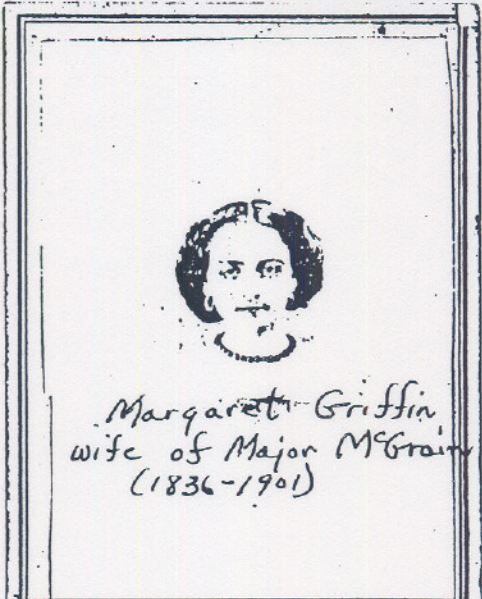 Margaret Griffin
wife of Major McGrain
(1836-1901)